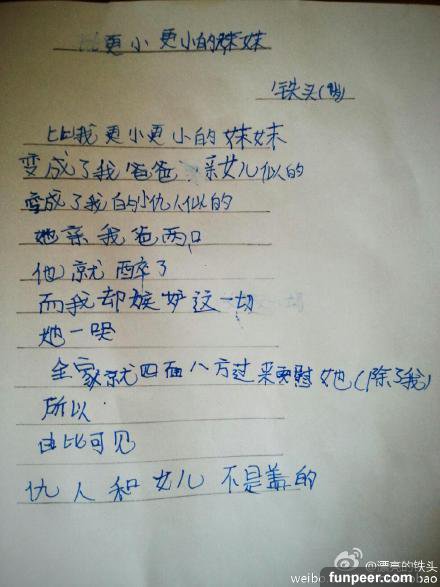 更小更小的妹妹
铁头(8岁)
比我更小更小的妹妹
变成了我爸爸 亲女儿似的
变成了我的小仇人似的
她亲我爸两口
他就醉了
而我却嫉妒这一切
她一哭
全家就四面八方过来安慰她(除了我)
所以
由此可见
仇人和女儿不是盖的
@漂亮的铁头
weibo
bao
funpeer.com